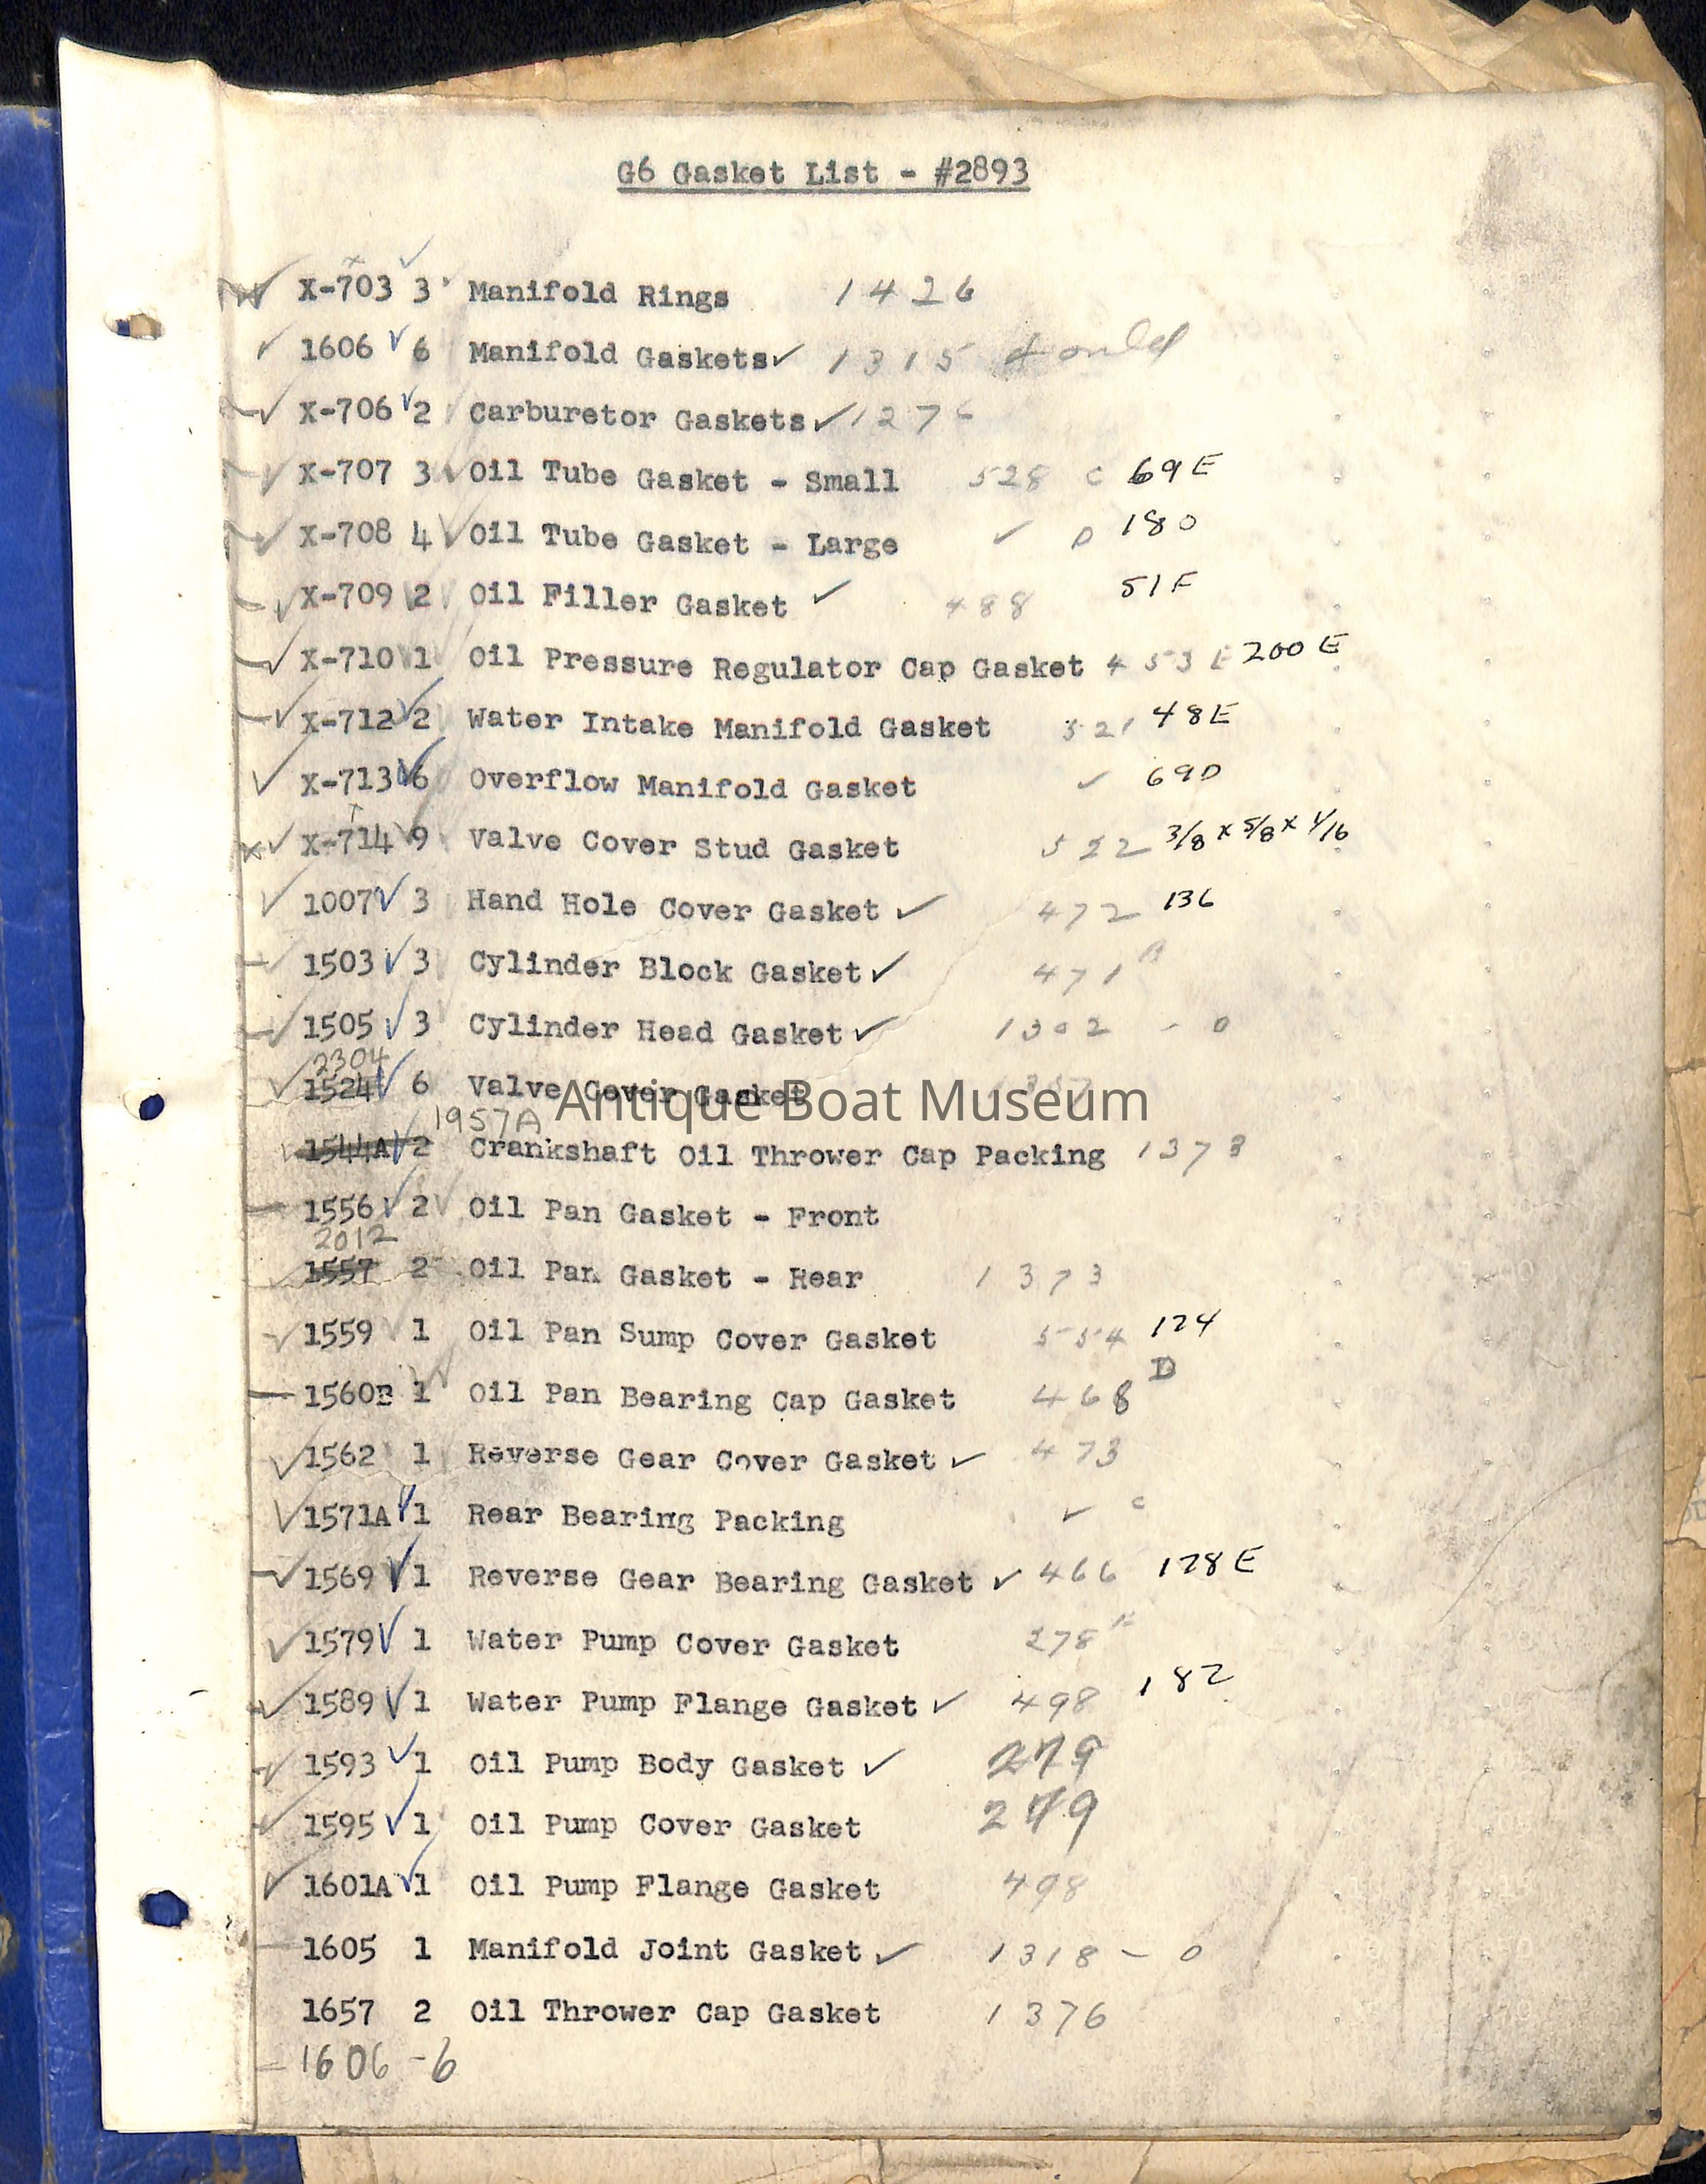 G6 Gasket List - #2893
X-703 3 Manifold Rings 1426
1606 6 Manifold Gaskets 1315
X-706 2 Carburetor Gaskets 127
X-707 3 Oil Tube Gasket - Small 528 C 69E
X-708 4 Oil Tube Gasket - Large D 180
X-709 2 Oil Filler Gasket 488 51F
X-710 1 Oil Pressure Regulator Cap Gasket 453E 200E
X-712 2 Water Intake Manifold Gasket 521 48E
X-713 6 Overflow Manifold Gasket 69D
X-714 9 Valve Cover Stud Gasket 522 3/8 x 5/8 x 1/16
1007 3 Hand Hole Cover Gasket 472 136
1503 3 Cylinder Block Gasket 471
1505 3 Cylinder Head Gasket 1302 - 0
2304
1524 6 Valve Cover Gasket
Antique Boat Museum
1957A
1544A 2 Crankshaft Oil Thrower Cap Packing 1378
1556 2 Oil Pan Gasket - Front
2012
1557 2 Oil Pan Gasket - Rear 1373
1559 1 Oil Pan Sump Cover Gasket 554 124
1560B 1 Oil Pan Bearing Cap Gasket 468 D
1562 1 Reverse Gear Cover Gasket 473
1571A 1 Rear Bearing Packing C
1569 1 Reverse Gear Bearing Gasket 466 128E
1579 1 Water Pump Cover Gasket 278
1589 1 Water Pump Flange Gasket 498 182
1593 1 Oil Pump Body Gasket 279
1595 1 Oil Pump Cover Gasket 279
1601A 1 Oil Pump Flange Gasket 498
1605 1 Manifold Joint Gasket 1318 - 0
1657 2 Oil Thrower Cap Gasket 1376
1606 - 6